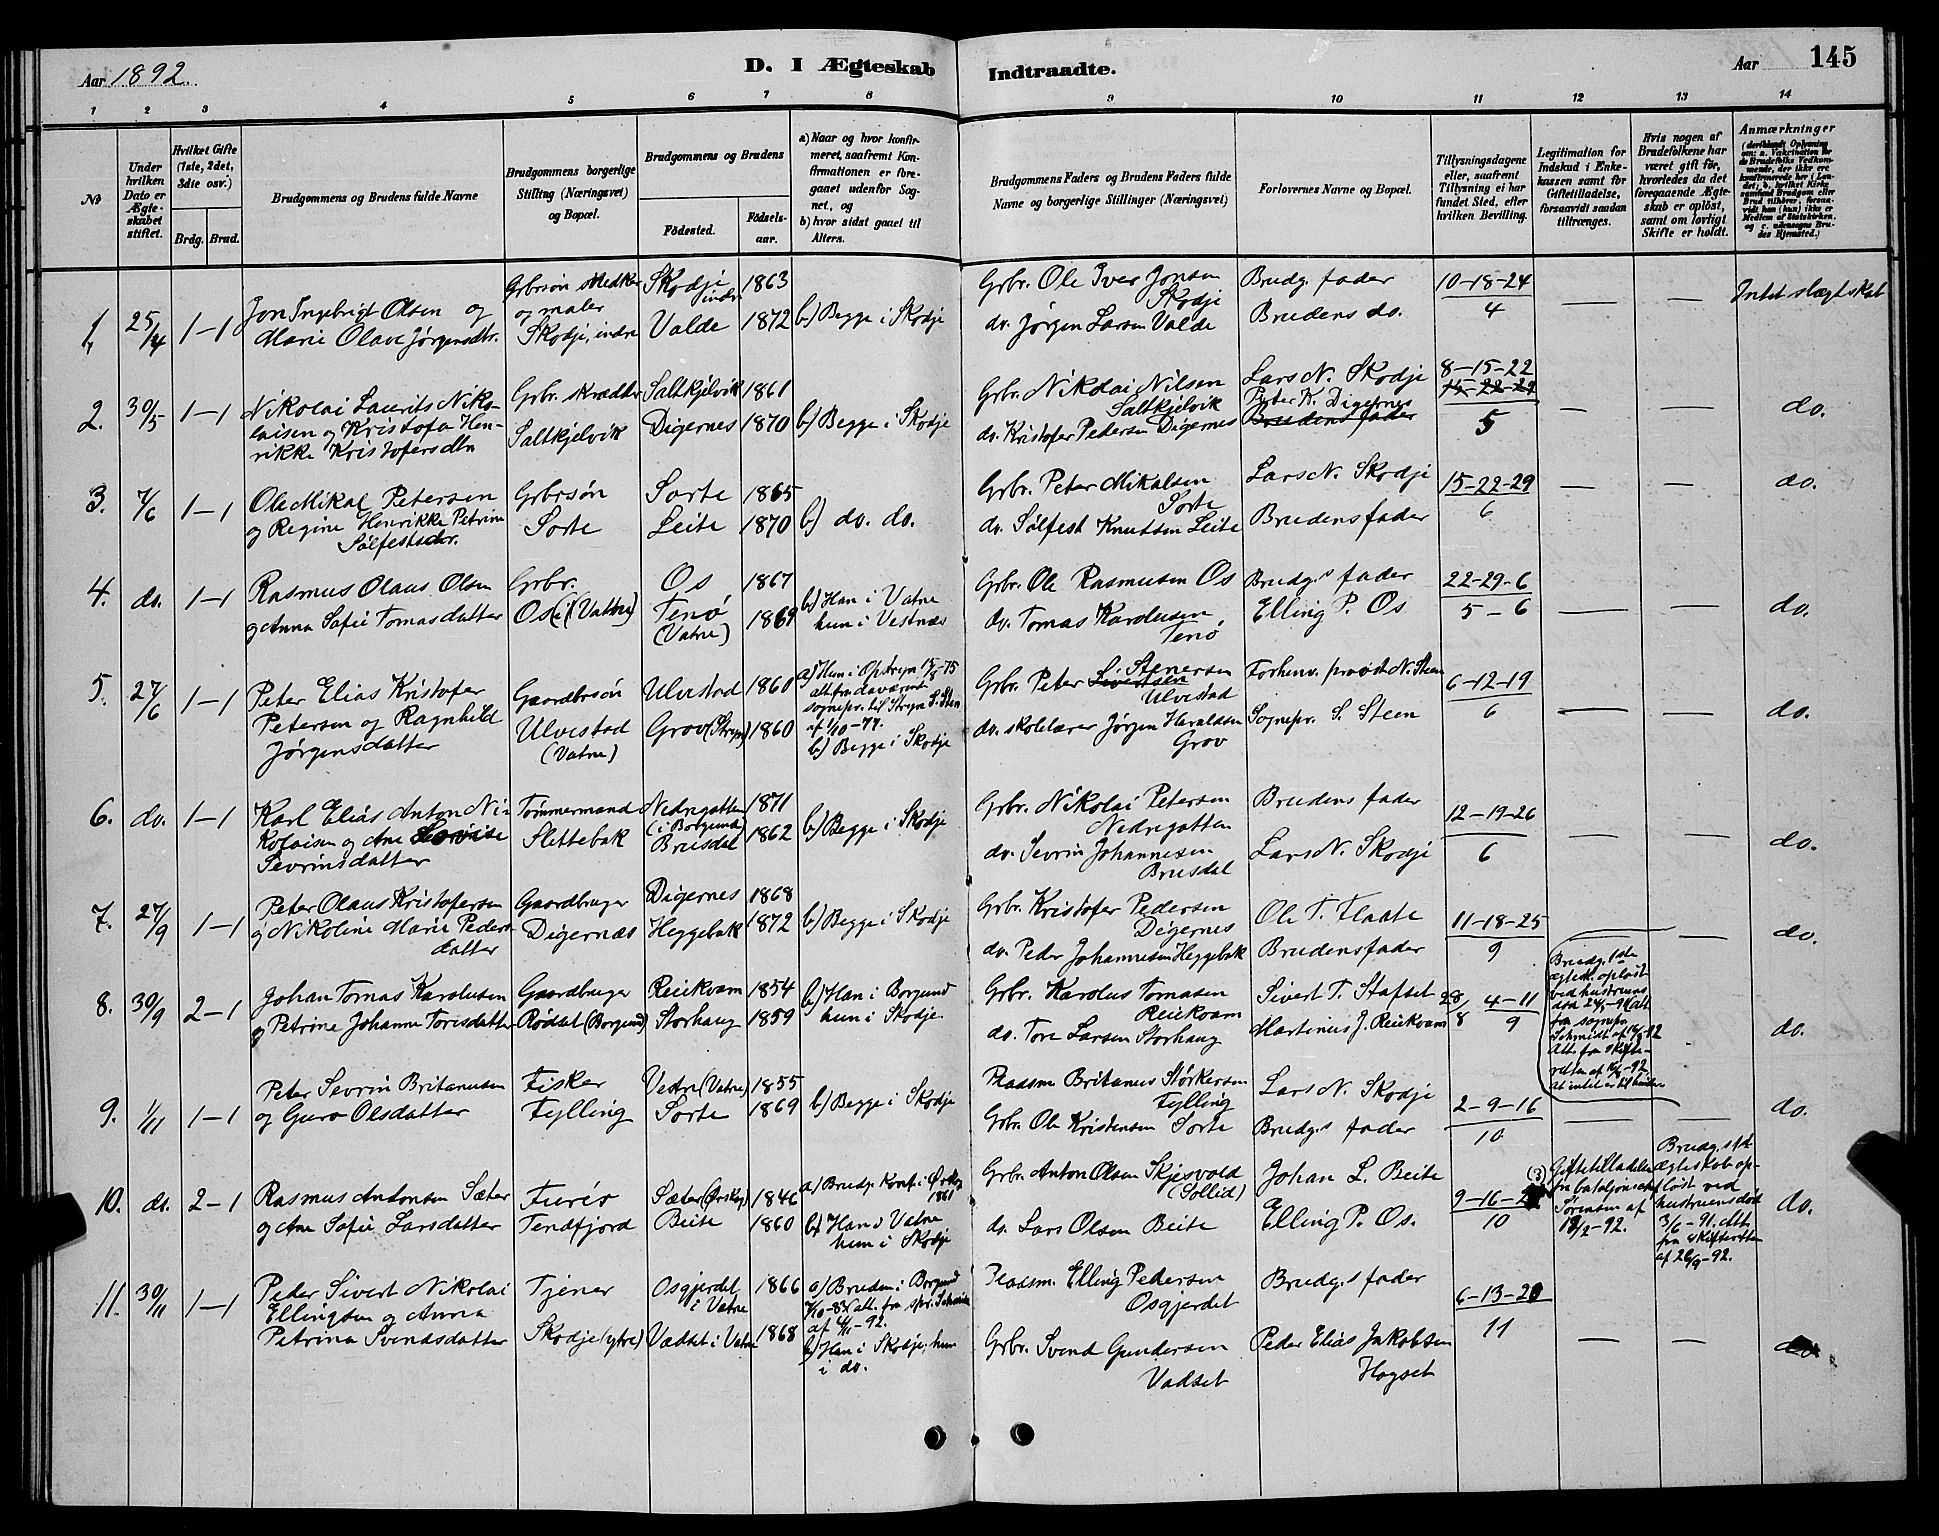 Aar 1892.
D. I Ægteskab Indtraadte.
Aar 145
1 2 3 4 5 6 7 8 9 10 11 12 13 14
No
Under hvilken Dato er Ægteskabet stiftet.
Hvilket Gifte (1ste, 2det, 3die osv.)
Brdg. Brud.
Brudgommens og Brudens fulde Navne
Brudgommens borgerlige Stilling (Næringsvei) og Bopæl.
Brudgommens og Brudens
Födested.
Födselsaar.
a) Naar og hvor konfirmeret, saafremt Konfirmationen er foregaaet udenfor Sognet, og
b) hvor sidst gaaet til Alters.
Brudgommens Faders og Brudens Faders fulde Navne og borgerlige Stillinger (Næringsvei)
Forlovernes Navne og Bopæl.
Tillysningsdagene eller, saafremt Tillysning ei har fundet Sted, efter hvilken Bevilling.
Legitimation for Indskud i Enkekassen samt for Giftetilladelse, forsaavidt saadan tiltrænges.
Hvis nogen af Brudefolkene har været gift för, hvorledes da det foregaaende Ægteskab er oplöst, samt om lovligt Skifte er holdt.
Anmærkninger
(deriblandt Oplysning om: a. Vaccination for de Brudefolks Vedkommende, der ikke ere konfirmerede her i Landet; b. hvilket Kirkesamfund Brudgom eller Brud tilhörer, forsaavidt han (hun) ikke er Medlem af Statskirken, og c. udensogns Brudes Hjemsted.)
1, 25/4 1-1
Jon Ingebrigt Olsen og
Marie Olave Jørgensdtr.
Grbrsøn snedker
og maler
Skodje, indre
Skodje indr. 1863
Valde 1872
b) Begge i Skodje
Grbr. Ole Iver Jonsen
Skodje
do. Jørgen Larsen Valde
Brudg. fader
Brudens do.
10-18-24
4
— —
Intet slægtskab
2. 30/5 1-1
Nikolai Laurits Niko-
laisen og Kristofa Hen-
rikke Kristofersdtr
Grbr. skrædder
Saltkjelvik
Saltkjelvik 1861
Digernes 1870
b) Begge i Skodje
Grbr. Nikolai Nilsen
Saltkjelvik
do. Kristofer Pedersen Digernes
Lars N. Skodje
Peter K. Digernes
Brudens fader
8-15-22
15-22-29
5
— —
do.
3. 7/6 1-1
Ole Mikal Petersen
og Regine Henrikke Petrine
Sølfestsdtr.
Grbrsøn
Sorte
Sorte 1865
Leite 1870
b) do. do.
Grbr. Peter Mikalsen
Sorte
do. Sølfest Knutsen Leite
Lars N. Skodje
Brudens fader
15-22-29
6
— —
do.
4. do. 1-1
Rasmus Olaus Olsen
og Anna Sofie Tomasdatter
Grbr.
Os (i Vatne)
Os 1867
Tenø 1869
(Vatne)
b) Han i Vatne
hun i Vestnes
Grbr. Ole Rasmusen Os
do. Tomas Karolusen
Tenø
Brudg.s fader
Elling P. Os
22-29-6
5-6
— —
do.
5. 27/6 1-1
Peter Elias Kristofer
Petersen og Ragnhild
Jørgensdatter
Gaardbrsøn
Ulvestad
(Vatne)
Ulvestad 1860
Grov (Stryn) 1860
a) Hun i Opstryn 15/8-75
att. fra daværende
sognepr. til Stryn S. Sten
af 1/10-77.
b) Begge i Skodje
Grbr. Peter Sivertsen Stenersen
Ulvestad
do. skolelærer Jørgen Haraldsen
Grov
Forhenv. provst N. Steen
Sognepr. S. Steen
6-12-19
6
— —
do.
6. do. 1-1
Karl Elias Anton Ni-
kolaisen og Ane Lovise
Sevrinsdatter
Tømmermand
Slettebak
Nedregotten 1871
(i Borgund)
Brusdal 1862
b) Begge i Skodje
Grbr. Nikolai Petersen
Nedregotten
do. Sevrin Johannesen
Brusdal
Brudens fader
Lars N. Skodje
12-19-26
6
— —
do.
7. 27/9 1-1
Peter Olaus Kristofersen
og Nikoline Marie Peders-
datter
Gaardbruger
Digernæs
Digernes 1868
Heggebak 1872
b) Begge i Skodje
Grbr. Kristofer Pedersen
Digernes
do. Peder Johannesen Heggebak
Ole T. Flaate
Brudens fader
11-18-25
9
— —
do.
8. 30/9 2-1
Johan Tomas Karolusen
og Petrine Johanne Toresdatter
Gaardbruger
Rødset (Borgund)
Reiekvam 1854
Storhaug 1859
b) Han i Borgund
hun i Skodje.
Grbr. Karolus Tomasen
Reiekvam
do. Tore Larsen Storhaug
Sivert T. Stafset
Martinus J. Reiekvam
28/8 4-11
9
Brudg. 1ste
ægtesk. opløst
ved hustruens
død 24/5-91 (att.
fra sognepr.
Schmidt af 16/8-92
Att. fra skifte-
retten af 16/8-92.
at intet er til hinder
—
do.
9. 1/11 1-1
Peter Sevrin Britanusen
og Guro Olsdatter
Fisker
Fylling
Vestre (Vatne) 1855
Sorte 1869
b) Begge i Skodje
Pladsm. Britanus Størkersen
Fylling
Grbr. Ole Kristensen Sorte
Lars N. Skodje
Brudg.s fader
2-9-16
10
— —
do.
10. do. 2-1
Rasmus Antonsen Sæter
og Ane Sofie Larsdatter
Furér
Tendfjord
Sæter (Ørskog) 1846
Beite 1860
a) Brudg. konf. i Ørskog
1861
b) Han i Vatne
hun i Skodje
Grbr. Anton Olsen Skjesvold
(Sollid)
do. Lars Olsen Beite
Johan L. Beite
Elling P. Os.
9-16-2 (3)
10
Giftetilladelse
fra bataljonschef
Sørensen af
12/2-92.
Brudg. 1ste
ægteskab op-
løst ved
hustruens død
3/6-91. Att.
fra skifteretten
af 26/9-92.
do.
11. 30/11 1-1
Peder Sivert Nikolai
Ellingsen og Anna
Petrina Svendsdatter
Tjener
Skodje (ytre)
Osgjerdet 1866
i Vatne
Vadset i Vatne 1868
a) Bruden i Borgund
att. fra spr. Schmidt
af 4/11-92.
b) Han i Skodje; hun
i do.
Pladsm. Elling Pedersen
Osgjerdet
Grbr. Svend Gundersen
Vadset
Brudg.s fader
Peder Elias Jakobsen
Hogset
6-13-20
11
— —
do.